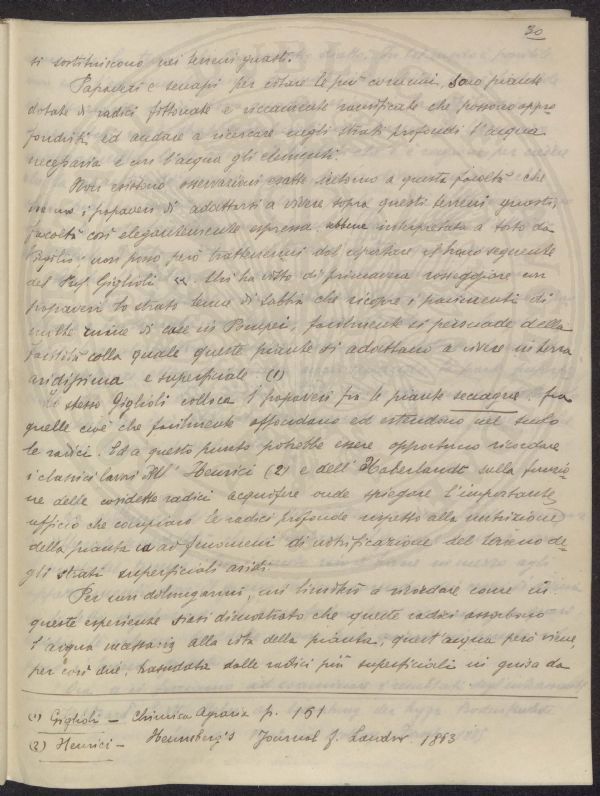 30
si sostituiscono nei terreni guasti.
Papaveri e senapi per citare le più comuni, sono piante
dotate di radici fittonate e riccamente ramificate che possono appro-
fondirsi ed andare a ricercare negli strati profondi l'acqua
necessaria e con l'acqua gli elementi.
Non esistono osservazioni esatte intorno a questa facoltà che
hanno i papaveri di adattarsi a vivere sopra questi terreni
facoltà così elegantemente espressa, interpretata a
Virgilio non posso però trattenermi dal riportare il brano seguente
del Prof Giglioli "Chi ha visto di primavera rosseggiare con
papaveri lo strato tenue di sabbia che ricopre i pavimenti di
molte ruine di case in Pompei, facilmente si persuade della
facilità colla quale queste piante si adattano a vivere in terra
aridissima e superficiale (1)
Lo stesso Giglioli colloca i papaveri fra le piante seccagne. fra
quelle cioè che facilmente affondano ed estendono nel suolo
le radici. Ed a questo punto potrebbe essere opportuno ricordare
i classici lavori dell' Henrici (2) e dell'Haberlandt sulla funzio-
ne delle cosidette radici acquifere onde spiegare l'importante
ufficio che compiono le radici profonde rispetto alla nutrizione
della pianta ed ai fenomeni di nitrificazione del terreno de-
gli strati superficiali aridi.
Per non dilungarmi, mi limiterò a ricordare come in
queste esperienze siasi dimostrato che queste radici assorbono
l'acqua necessaria alla vita della pianta; quest'acqua però viene,
per così dire, trasudata dalle radici più superficiali in guisa da
(1) Giglioli - Chimica Agraria p. 151
(2) Henrici - Henneberg's Journal f. Landw. 1863